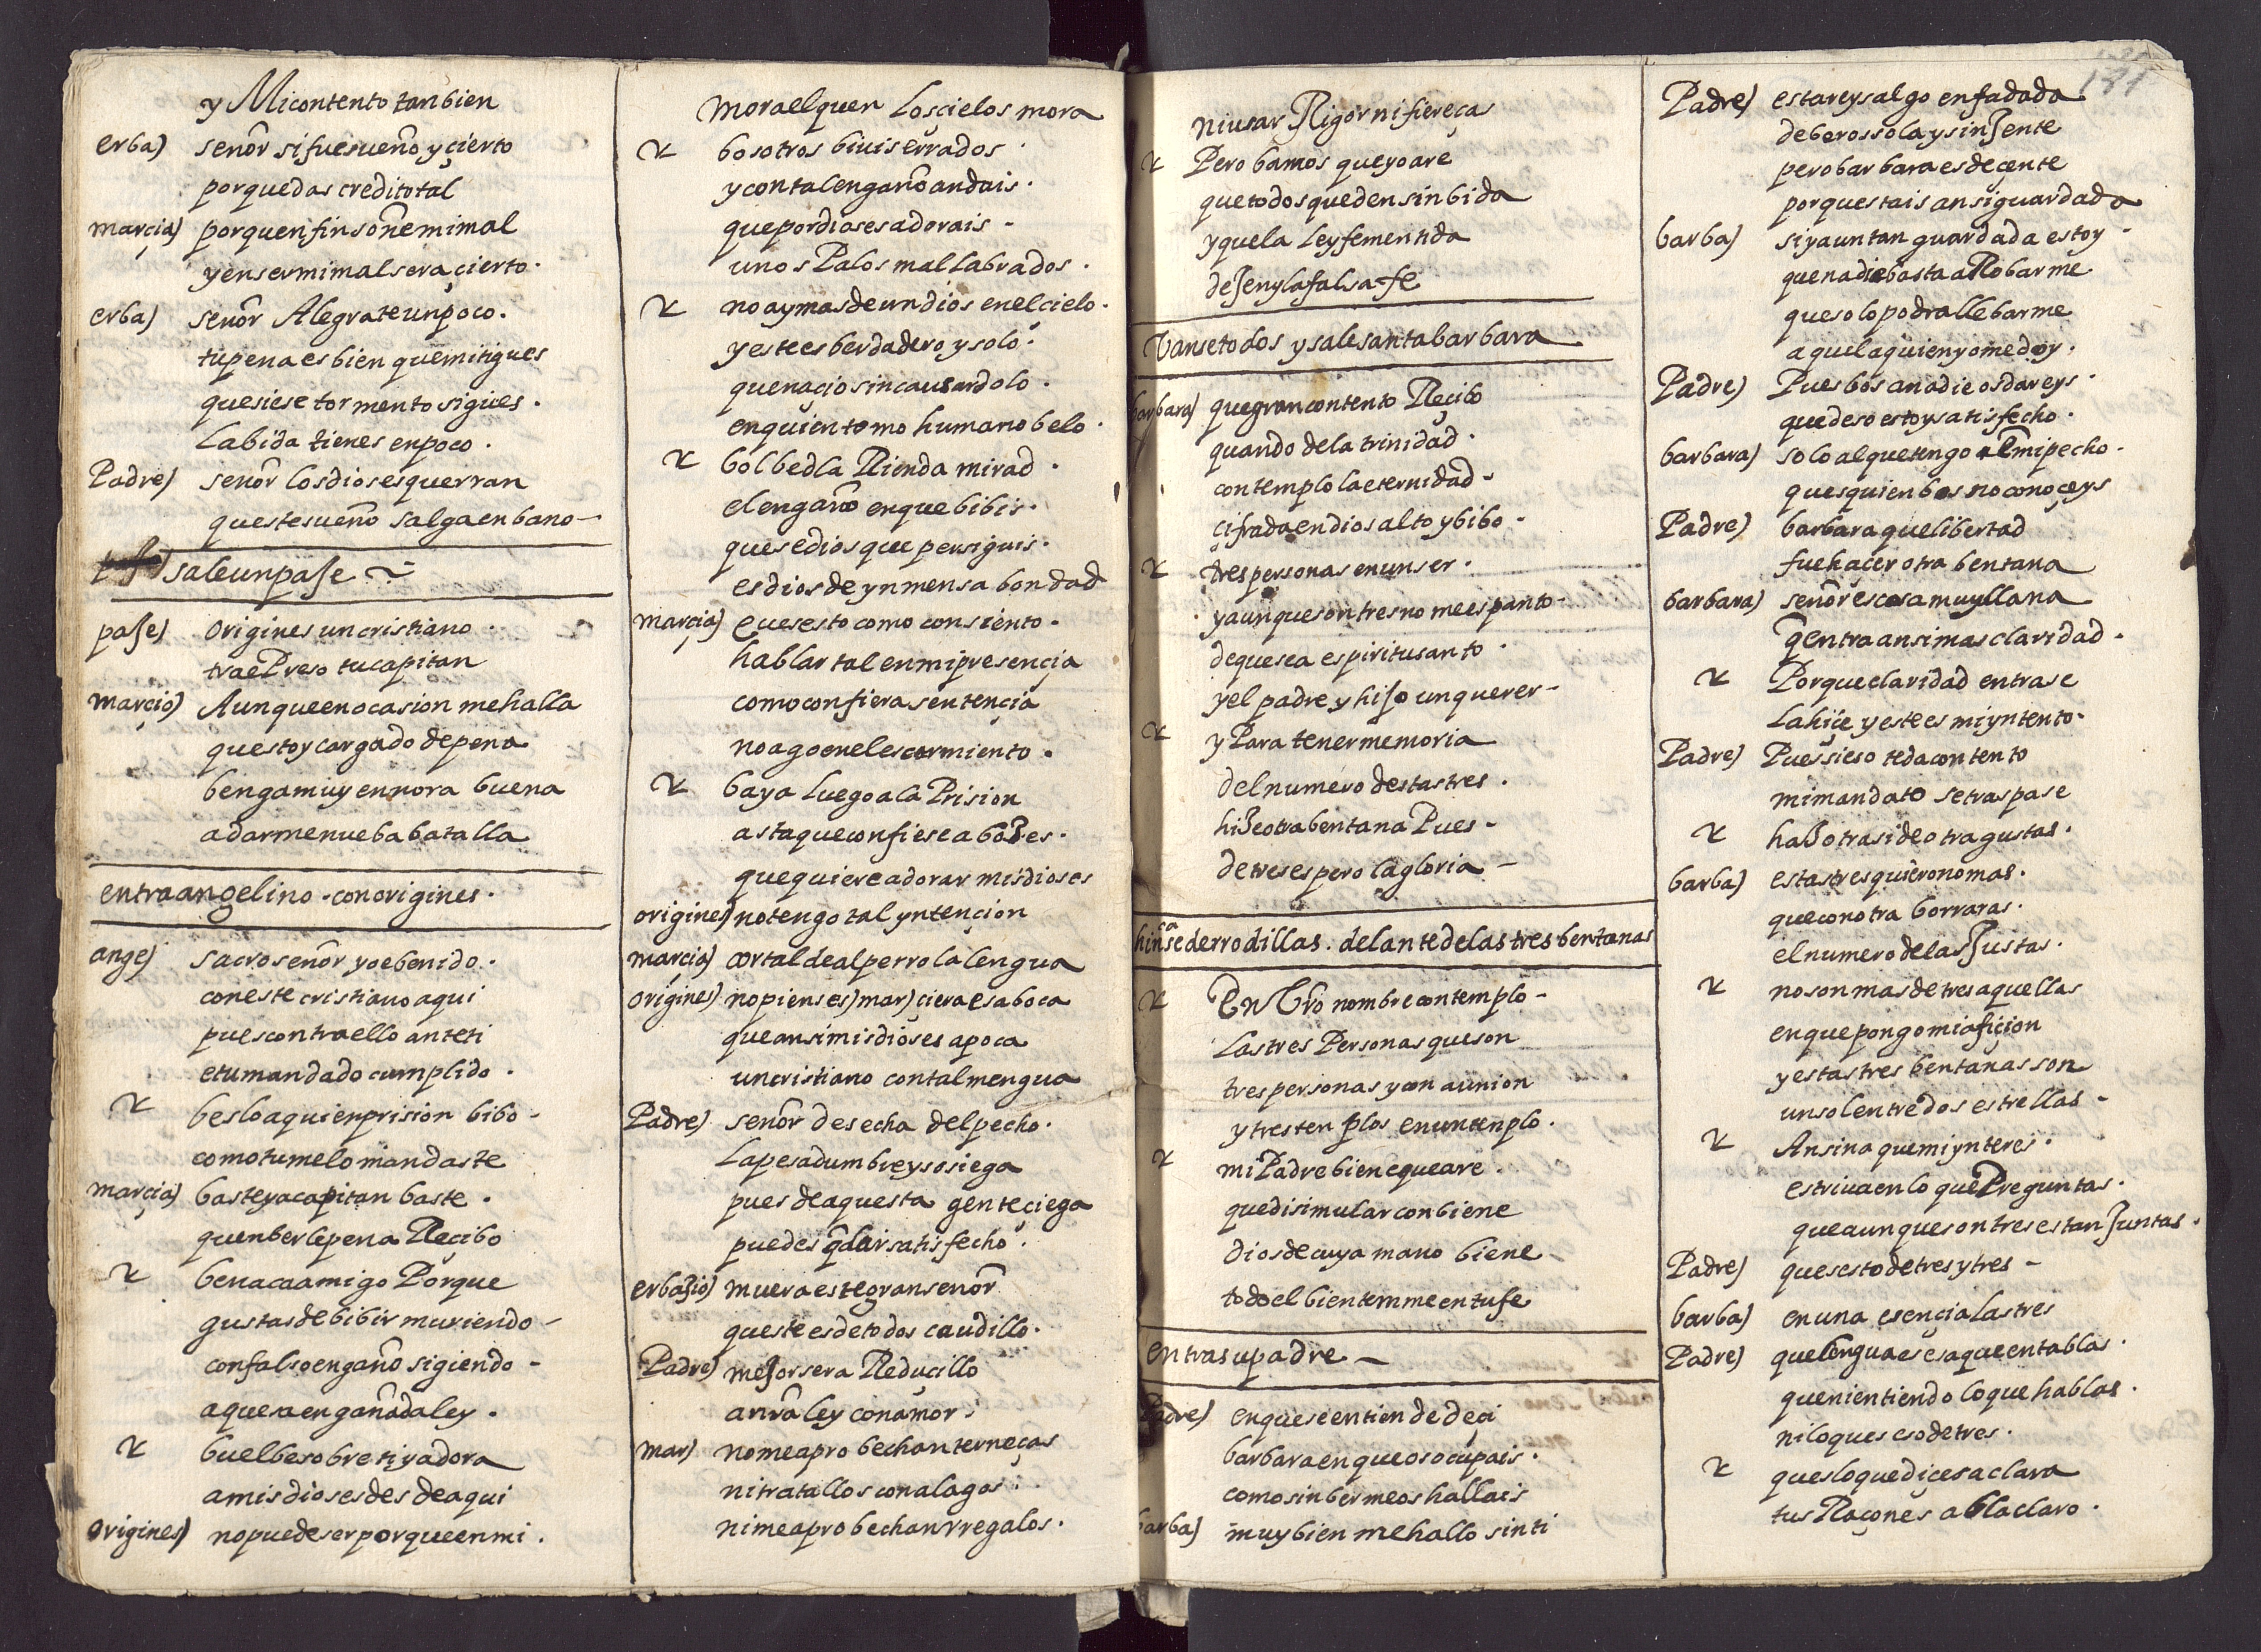 y Micontento tanbien
erba) señor sifuesueño y çierto
porquedas creditotal
marçia) porquenfinsoñemimal
yensermimalsera çierto.
erba) señor Alegrateunpoco.
tupena es bien quemitigues
quesiese tormento sigues.
Labida tienes enpoco.
Padre) señor losdiosesquerran
questesueño salgaenbano-
saleunpaje
paje) origines uncristiano.
trae Preso tucapitan
marçio) Aunqueenocasion mehalla
questoycargado depena
bengamuy ennora buena
adarmenuebabatalla
entraangelino. conorigines.
ange) sacroseñor yoebenido.
coneste cristianoaqui
puescontraello anteti
etumandado cumplido.
besloaquienprision bibo-
comotumelomandaste
marçia) basteyacapitan baste.
quenberlepena Reçibo
benacaamigo Porque
gustasdebibir muriendo-
confalsoengaño sigiendo-
aquesaengañadaley.
buelbesobretiyadora
amisdiosesdesdeaqui
origines) nopuedeserporqueenmi.
moraelquen Losçielos mora
bosotros biuiserrados.
ycontalengañoandais.
quepordiosesadorais-
unos Palos mallabrados.
noaymasdeundios enelçielo.
yestees berdadero y solo.
quenaçiosincausardolo.
enquientomo humanobelo.
bolbedla Rienda mirad.
elengaño enquebibis.
quesedios que perseguis.
esdiosdeynmensa bondad
marçia) quesesto como consiento.
hablartal enmipresençia
comoconfierasentençia
noagoenelescarmiento.
baya Luegoala Prision
astaqueconfieseaboses.
quequiereadorar misdioses
origines) notengotal yntençion
marçia) cortaldealperrolalengua
origines) nopienses) mar) çierraesaboca
queansimisdioses apoca
uncristiano contalmengua
Padre) señor desecha delpecho.
Lapesadumbreysosiega
pues deaquesta genteçiega
puedes qdar satisfecho.
erbasio) mueraestegranseñor
questeesdetodos caudillo.
Padre) mejorsera Reduçillo
anrãley conamor.
mar) nomeaprobechanterneças
nitratallosconalagos.
nimeaprobechanrregalos.
niusar Rigor nifiereças
Pero bamos queyoare
quetodosquedensinbida
yquela Leyfementida
dejenylafalsafe
Vansetodos ysalesantabarbara
barbara) quegrancontento Reçibo
quando dela trinidad.
contemplolaeternidad.
çifradaendiosaltoybibo.
trespersonas enunser.
yaunquesontresno meespanto-
dequesea espiritusanto.
yel padre y hijo unquerer-
y Para tenermemoria
delnumero destastres.
hiseotrabentana Pues-
detresespero lagloria-
hincasederrodillas. delantedelastresbentanas
En Vrõ nombrecontemplo-
Lastres Personasqueson
trespersonas yconaunion
ytrestenplos enuntenplo.
mi Padrebienequeare.
quedisimularconbiene
diosdecuya mano biene
todoelbientenmeentufe
entrasupadre-
Padre) enqueseentiendedeçi
barbaraenqueosocupais.
comosinbermeoshallais
barba) muybien mehallo sinti
181
Padre) estareysalgo enfadada
deberossolaysinjente
perobarbaraesdeçente
porquestaisansiguardada
barba) siyauntan guardada estoy
quenadiebastaaRobarme
quesolopodrallebarme
aquelaquienyomedoy.
Padre) Puesbos anadieosdareys.
quedesoestoysatisfecho.
barbara) soloalquetengo enmipecho.
quesquienbosnoconoçeys
Padre) barbaraquelibertad
fuehaçerotra bentana
barbara) señorescosamuyllana
qentraansimasclaridad.
Porqueclaridad entrase
Lahiçe yestees miyntento.
Padre) Puessieso tedacontento
mimandato setraspase
hasotrasideotragustas.
barba) estastresquieronomas.
queconotra borraras.
elnumerodelasJustas.
nosonmasdetresaquellas
enquepongomiafiçion
yestastres bentanasson
unsolentredos estrellas-
Ansina quemiynteres.
estriuaenlo que Preguntas.
queaunquesontresestanJuntas.
Padre) quesestodetresytres-
barba) enuna esençialastres
Padre) quelenguaesesaqueentablas.
quenientiendoloquehablas.
niloqueseso detres.
quesloquediçesaclara
tus Raçones ablaclaro.